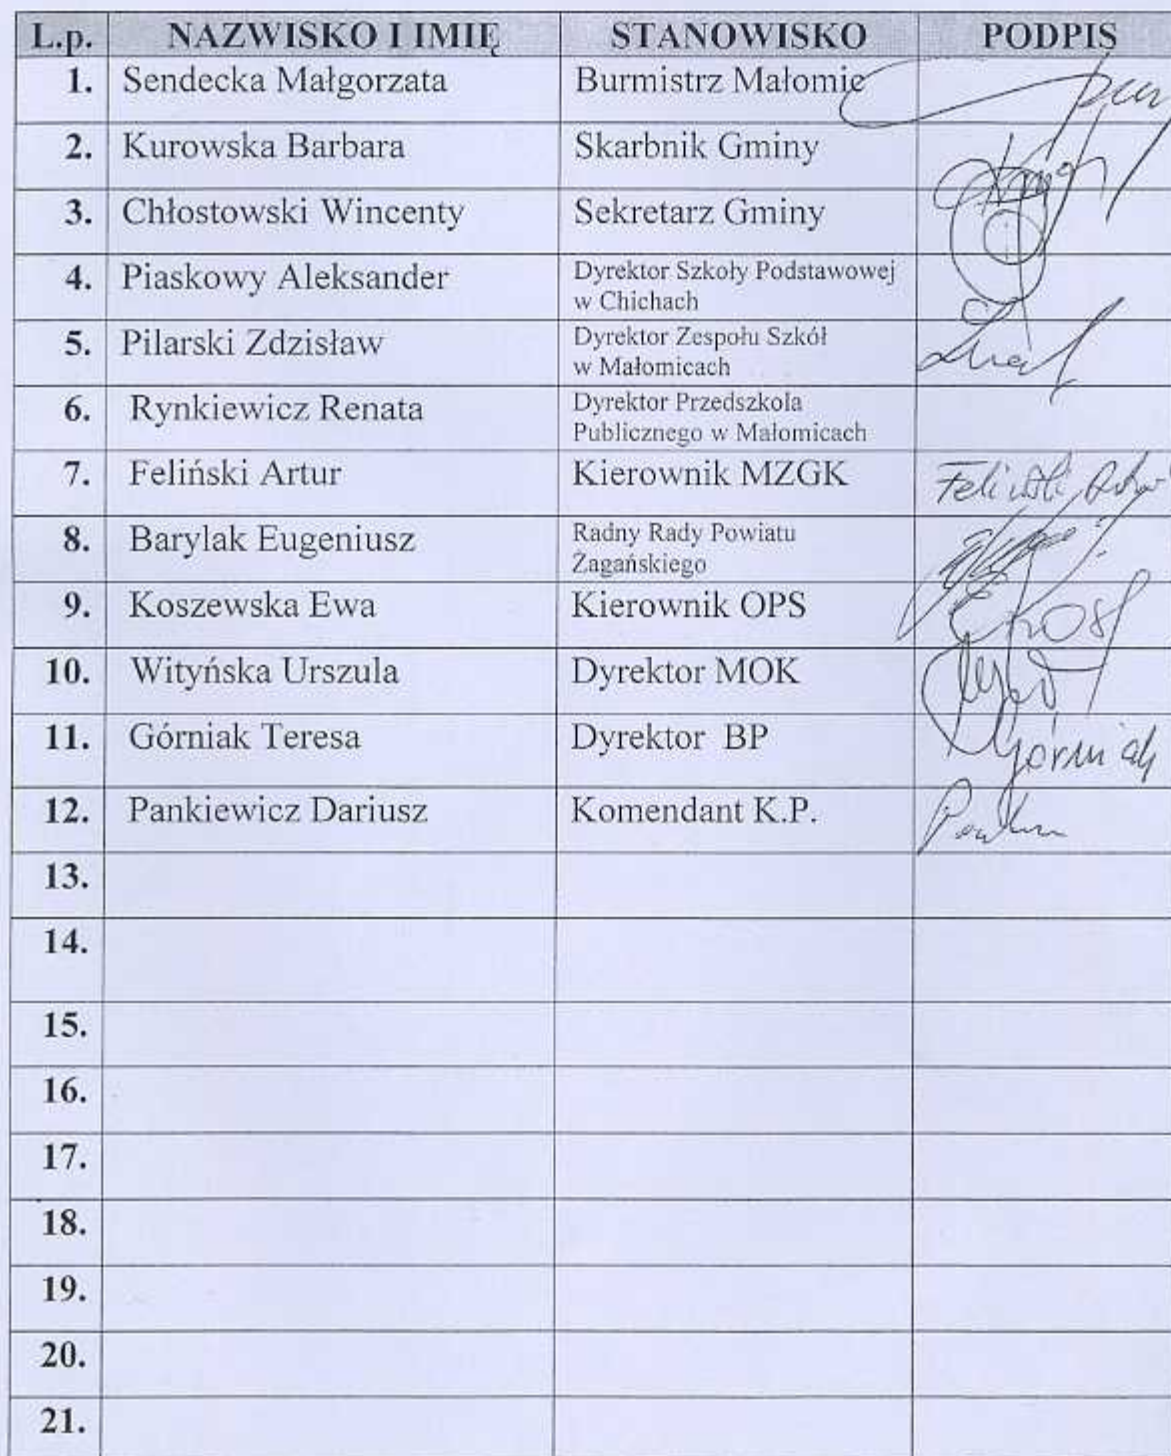 L.p. NAZWISKO I IMIĘ STANOWISKO PODPIS
1. Sendecka Małgorzata Burmistrz Małomic
2. Kurowska Barbara Skarbnik Gminy
3. Chłostowski Wincenty Sekretarz Gminy
4. Piaskowy Aleksander Dyrektor Szkoły Podstawowej
w Chichach
5. Pilarski Zdzisław Dyrektor Zespołu Szkół
w Małomicach
6. Rynkiewicz Renata Dyrektor Przedszkola
Publicznego w Małomicach
7. Feliński Artur Kierownik MZGK Feliński Artur
8. Barylak Eugeniusz Radny Rady Powiatu
Żagańskiego
9. Koszewska Ewa Kierownik OPS
10. Wityńska Urszula Dyrektor MOK
11. Górniak Teresa Dyrektor BP Górniak
12. Pankiewicz Dariusz Komendant K.P.
13.
14.
15.
16.
17.
18.
19.
20.
21.